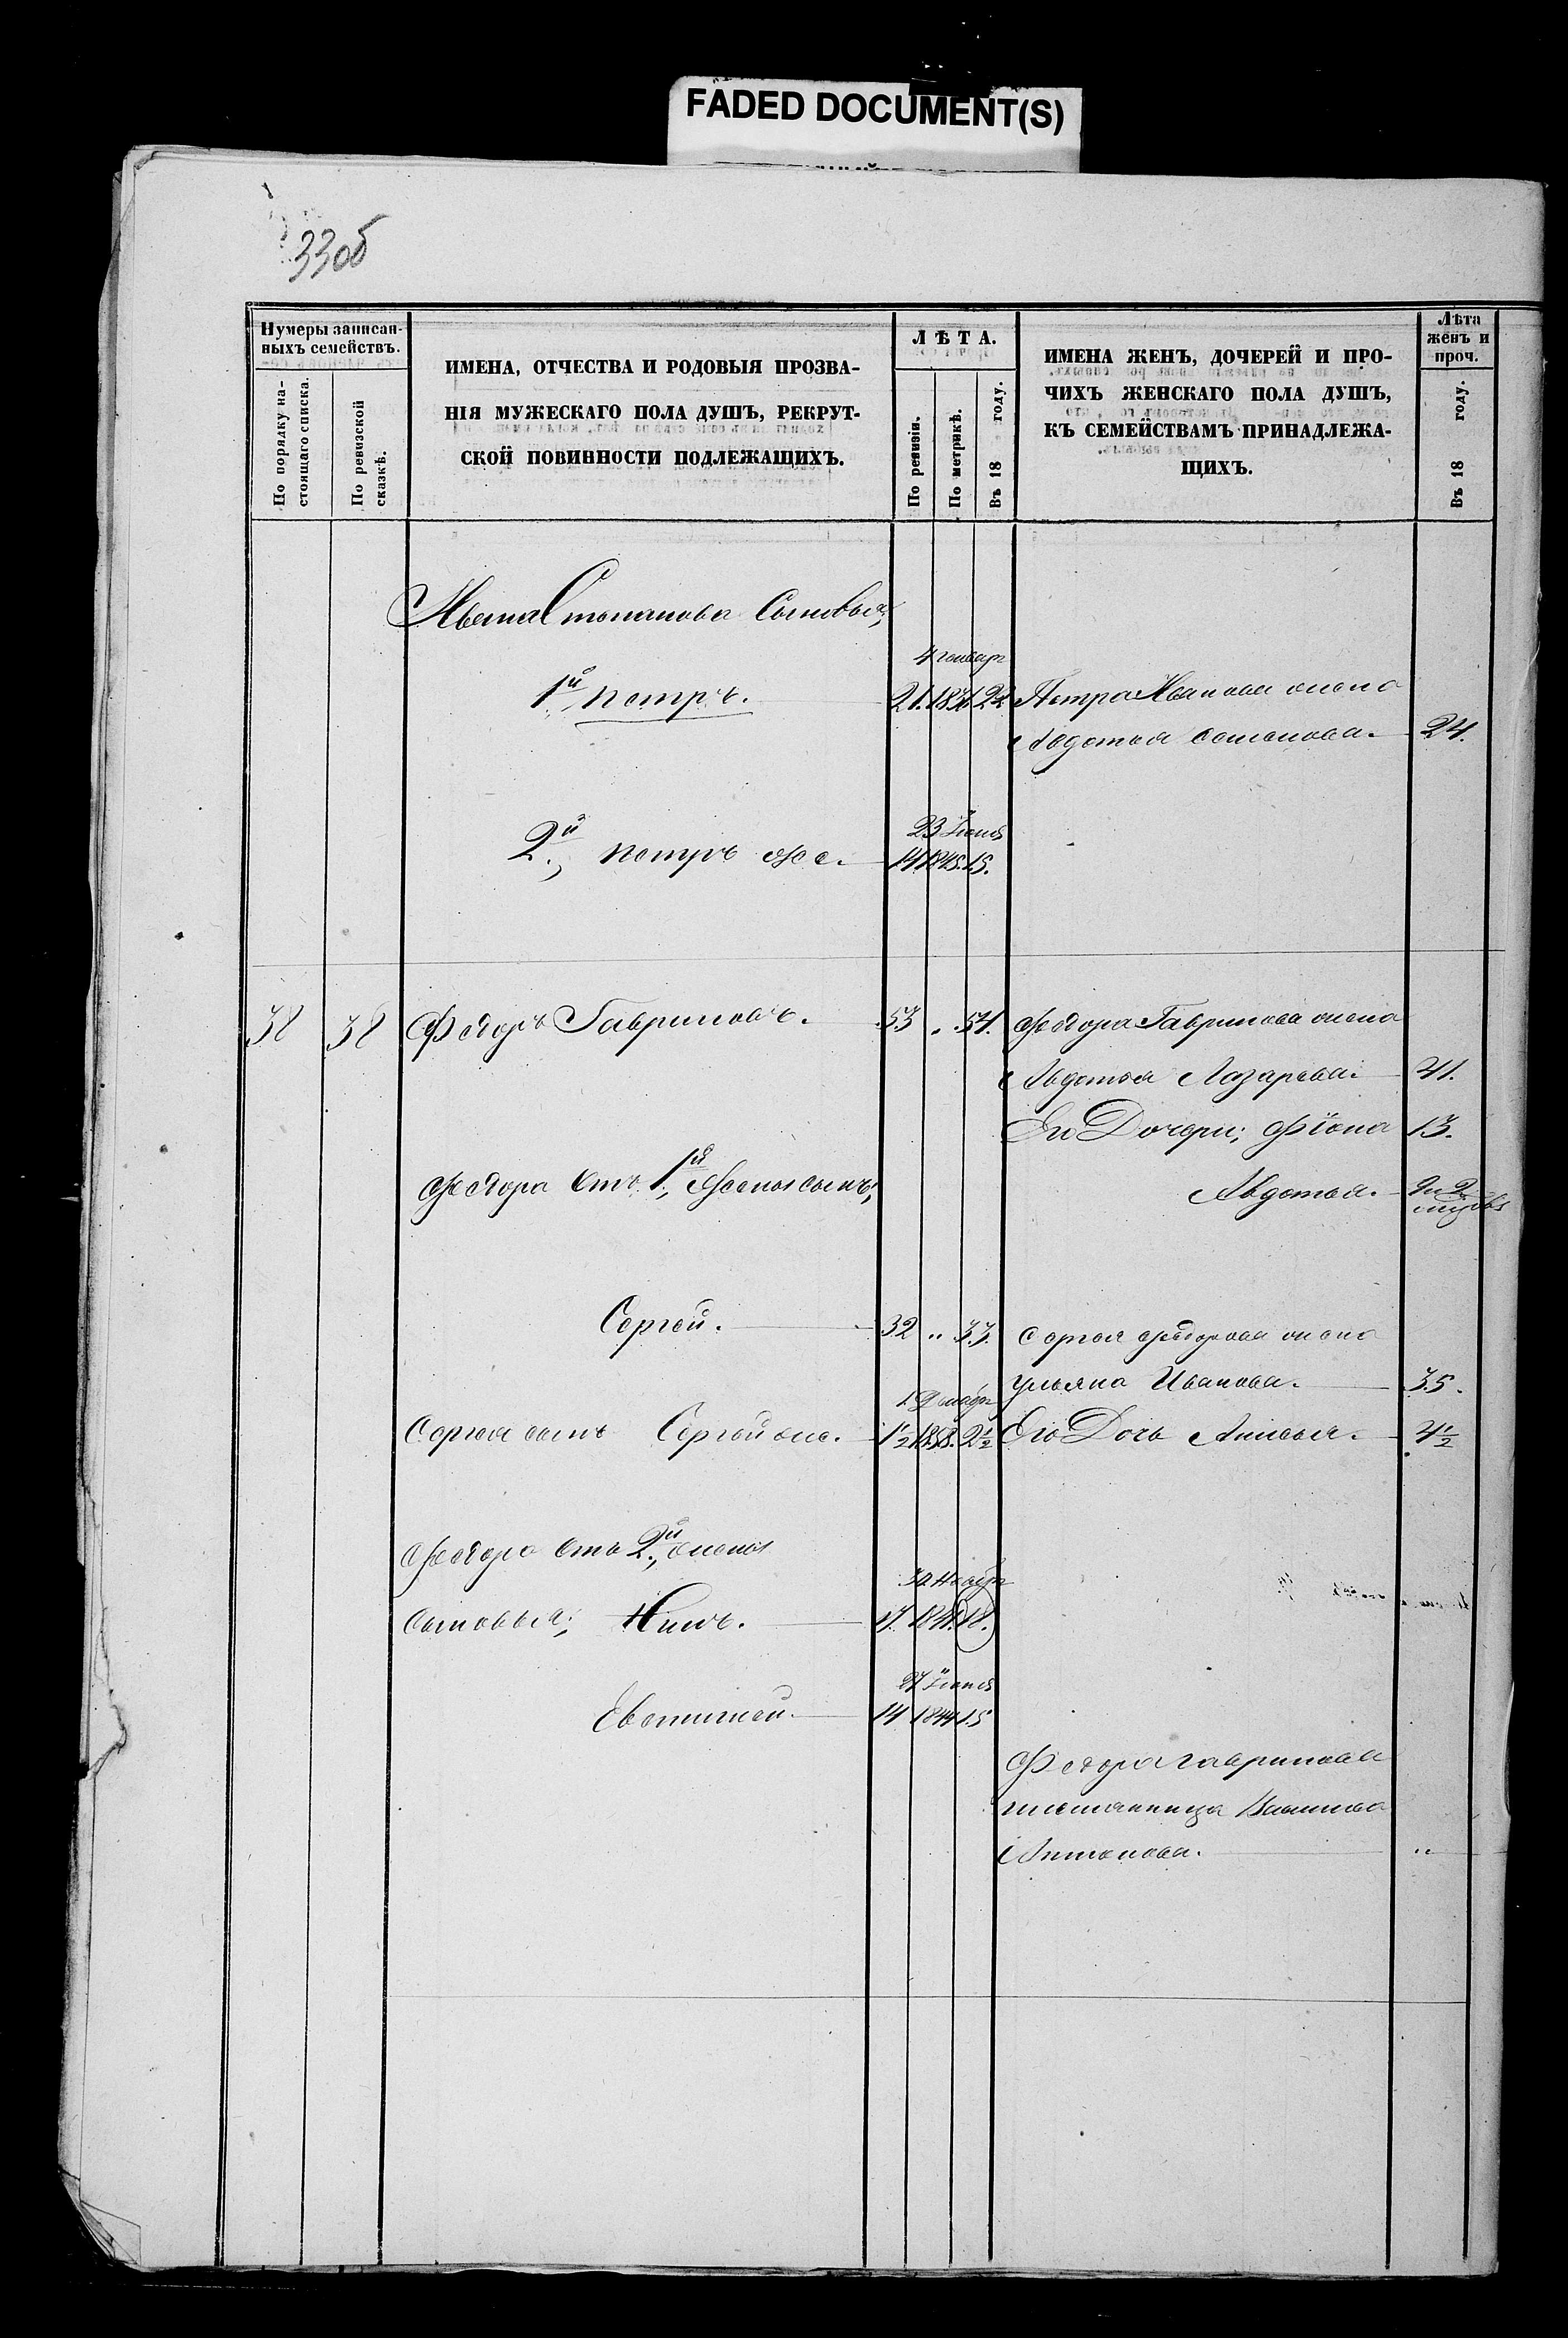 FADED DOCUMENT(S)
33об
Нумеры записан-
ныхъ семействъ.
По порядку на-
стоящаго списка.
По ревизской
сказкѣ.
ИМЕНА, ОТЧЕСТВА И РОДОВЫЯ ПРОЗВА-
НІЯ МУЖЕСКАГО ПОЛА ДУШЪ, РЕКРУТ-
СКОЙ ПОВИННОСТИ ПОДЛЕЖАЩИХЪ.
ЛѢТА.
По ревизіи.
По метрикѣ.
Въ 18 году.
ИМЕНА ЖЕНЪ, ДОЧЕРЕЙ И ПРО-
ЧИХЪ ЖЕНСКАГО ПОЛА ДУШЪ,
КЪ СЕМЕЙСТВАМЪ ПРИНАДЛЕЖА-
ЩИХЪ.
Лѣта
женъ и
проч.
Въ 18 году.
Ивана Степанова Сыновья;
4 генваря
1й Петръ. 21. 22 Петра Иванова жена
Авдотья Семенова. 24.
23 Іюня
2й, Петръ же. 14 1845. 15.
38 38 Федоръ Гавриловъ. 53 „ 54. Федора Гаврилова жена
Авдотья Лазарева. 41.
Его Дочери; Фіона 13.
Федора Отъ 1й, Жены сынъ; Авдотья.
Сергей. 32 „ 33. Сергея Федорова жена
Ульяна Иванова. 35.
1 Декабр
Сергея сынъ Сергей же. 1½ 1858. 2½ Его Дочь 4½
Федора Отъ 2й, жены
30 Ноябр
Сыновья; Нилъ. 17. 1841. 18.
27 Іюня
14 1844 15
Федора Гаврилова
племянница
Антонова. „